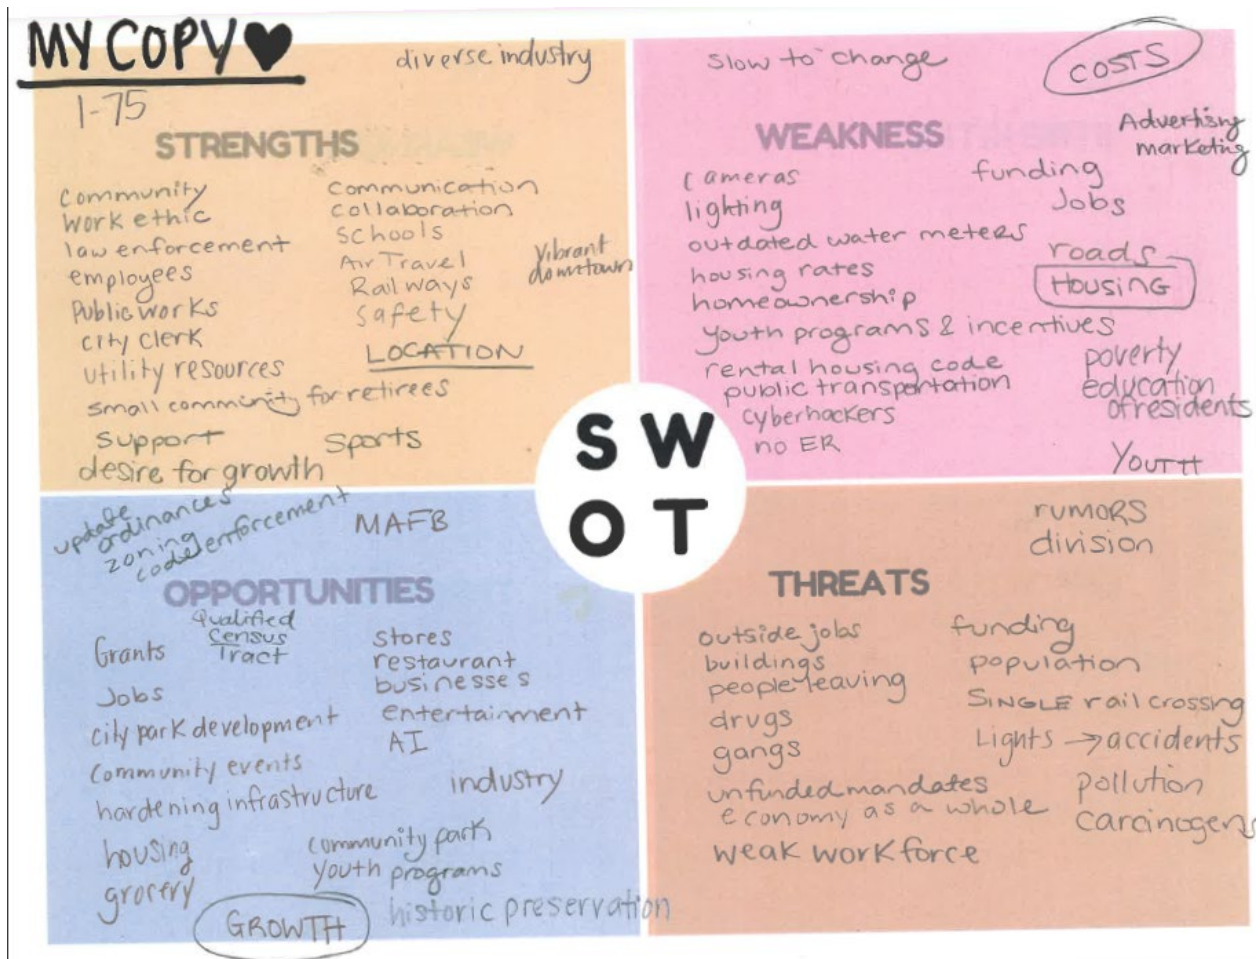 MY COPY ♥
diverse industry
I-75
STRENGTHS
community
work ethic
law enforcement
employees
Public works
city clerk
utility resources
small community for retirees
support
desire for growth
communication
collaboration
schools
Air Travel
Railways
safety
LOCATION
Sports
vibrant
downtown
slow to change
COSTS
WEAKNESS
Advertising
marketing
cameras
lighting
outdated water meters
housing rates
homeownership
youth programs & incentives
rental housing code
public transportation
cyberhackers
no ER
funding
Jobs
roads
HOUSING
poverty
education
of residents
YOUTH
S W
O T
update
ordinances
zoning
code enforcement
MAFB
OPPORTUNITIES
Qualified
Census
Tract
Grants
Jobs
city park development
community events
hardening infrastructure
housing
grocery
GROWTH
stores
restaurant
businesses
entertainment
AI
industry
community park
youth programs
historic preservation
rumors
division
THREATS
outside jobs
buildings
people leaving
drugs
gangs
unfunded mandates
economy as a whole
weak workforce
funding
population
SINGLE rail crossing
Lights → accidents
pollution
carcinogens